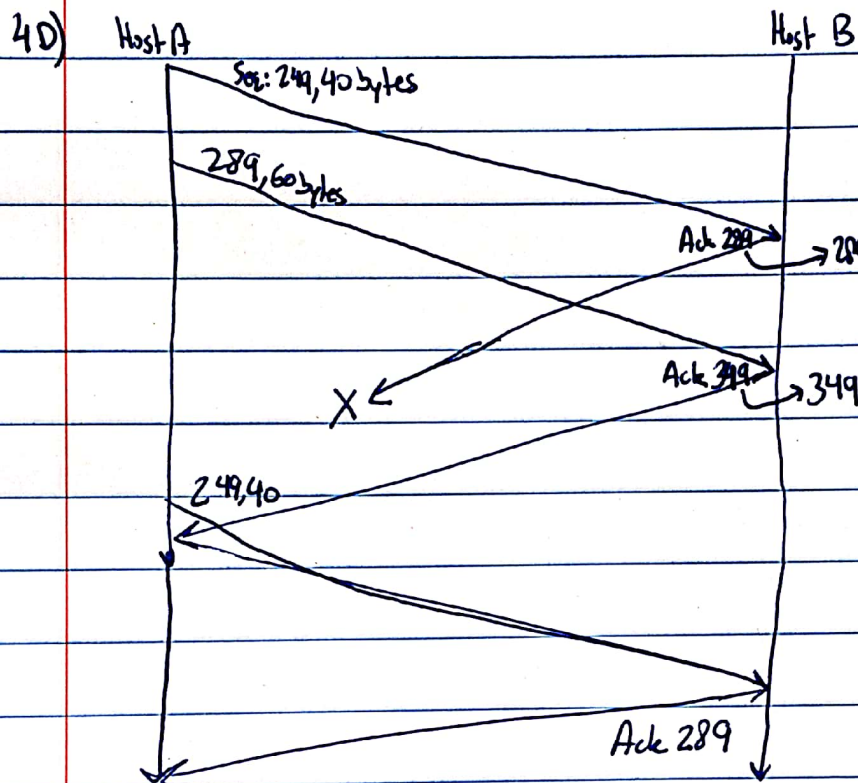 4D) Host A Host B
Seq: 249, 40 bytes
289, 60 bytes
Ack 289
Ack 349 → 349
X
249,40
Ack 289